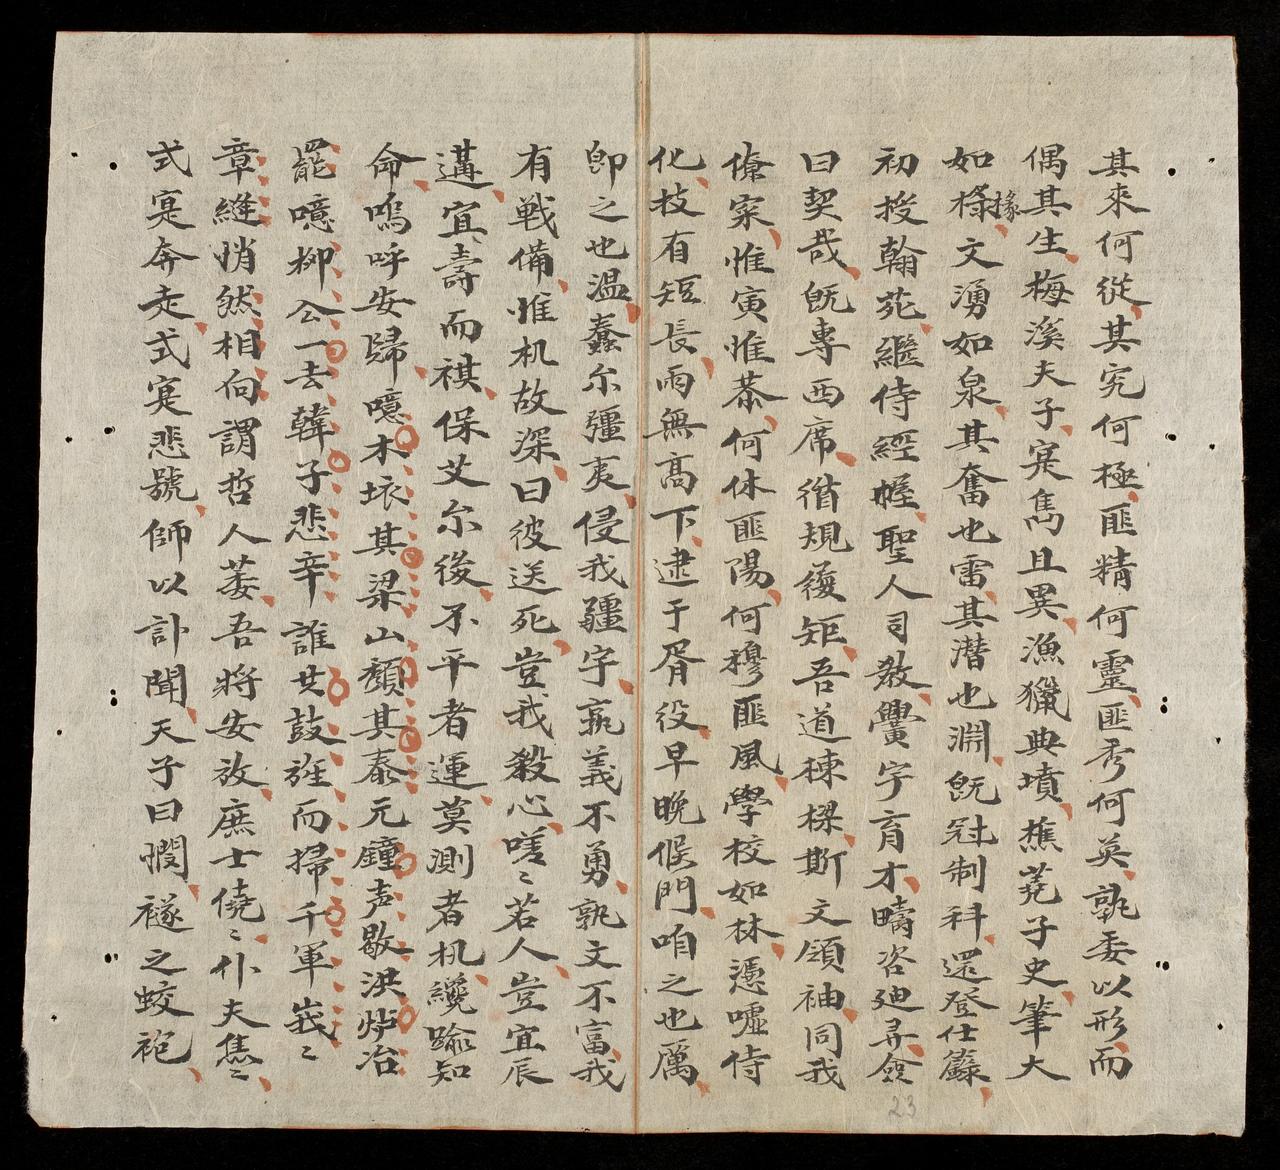 其來何從其究何極匪精何靈匪秀何英孰委以形而
偶其生梅溪夫子寔雋且異漁獵典墳樵蕘子史筆大
如椽文湧如泉其奮也雷其潛也淵旣冠制科還登仕籙
椽
初授翰苑繼侍經幄聖人司教黌宇育才疇咨廸尋僉
曰契哉旣專西席循規蹈矩吾道棟樑斯文領袖同我
僚寀惟寅惟恭何休匪陽何穆匪風學校如林憑噓侍
化技有短長雨無高下逮于胥役早晩候門咱之也厲
卽之也温蠢尔彊夷侵我疆宇孰義不勇孰文不富我
有戦備惟机故深曰彼送死豈我殺心嗟〻若人豈宜辰
遘宜壽而祺保艾尔後不平者運莫測者机纔踰知
命嗚呼安歸噫木坏其梁山頽其泰元鐘声歇洪炉冶
罷噫柳公一去韓子悲辛誰世鼓旌而掃千軍峩〻
章縫悄然相向謂哲人萎吾將安放庶士僥〻仆夫僬〻
式寔奔走式寔悲號師以訃聞天子曰憫襚之蛟袍
23